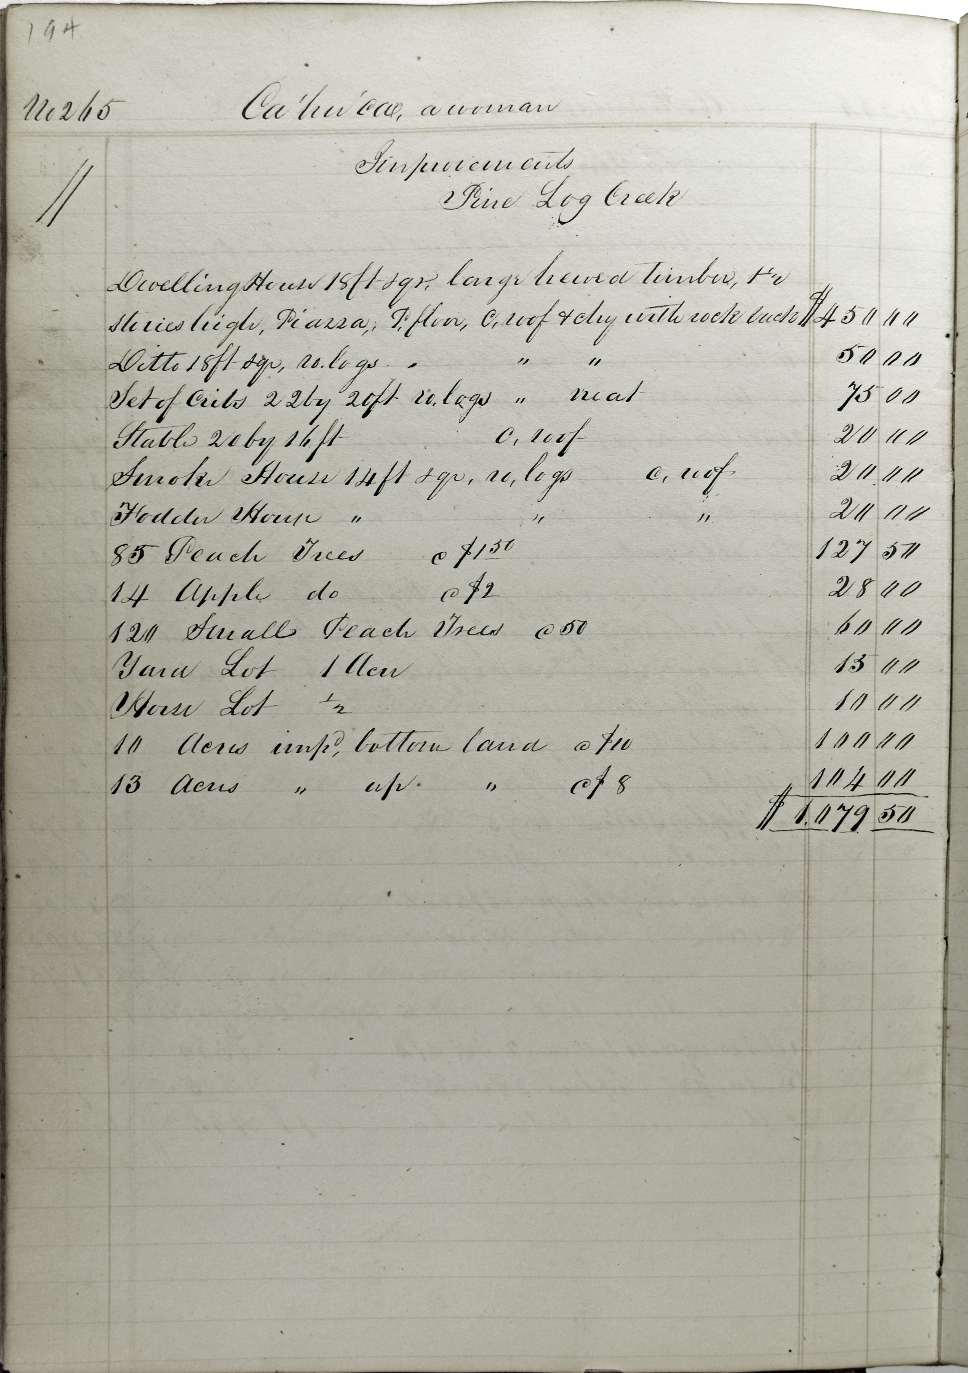 194
No 265 Ca'hu'cae, a woman
Improvements
Pine Log Creek
Dwelling House 18ft sqr, large hewed timber, 1½
stories high, Piazza, P. floor, C. roof & chy with rock back $450 00
Ditto 18ft sqr, ro. logs " " 50 00
Set of Cribs 22 by 20ft ro. logs " neat 75 00
Stable 20 by 16 ft C, roof 20 00
Smoke House 14ft sqr, ro, logs c, roof 20 00
Fodder House " " " 20 00
85 Peach Trees @ $1 50 127 50
14 Apple do @ $2 28 00
120 Small Peach Trees @ 50 60 00
Yard Lot 1 Acre 15 00
Horse Lot ½ 10 00
10 Acres impd, bottom land @ $10 100 00
13 Acres " up. " @ $8 104 00
$1.079 50